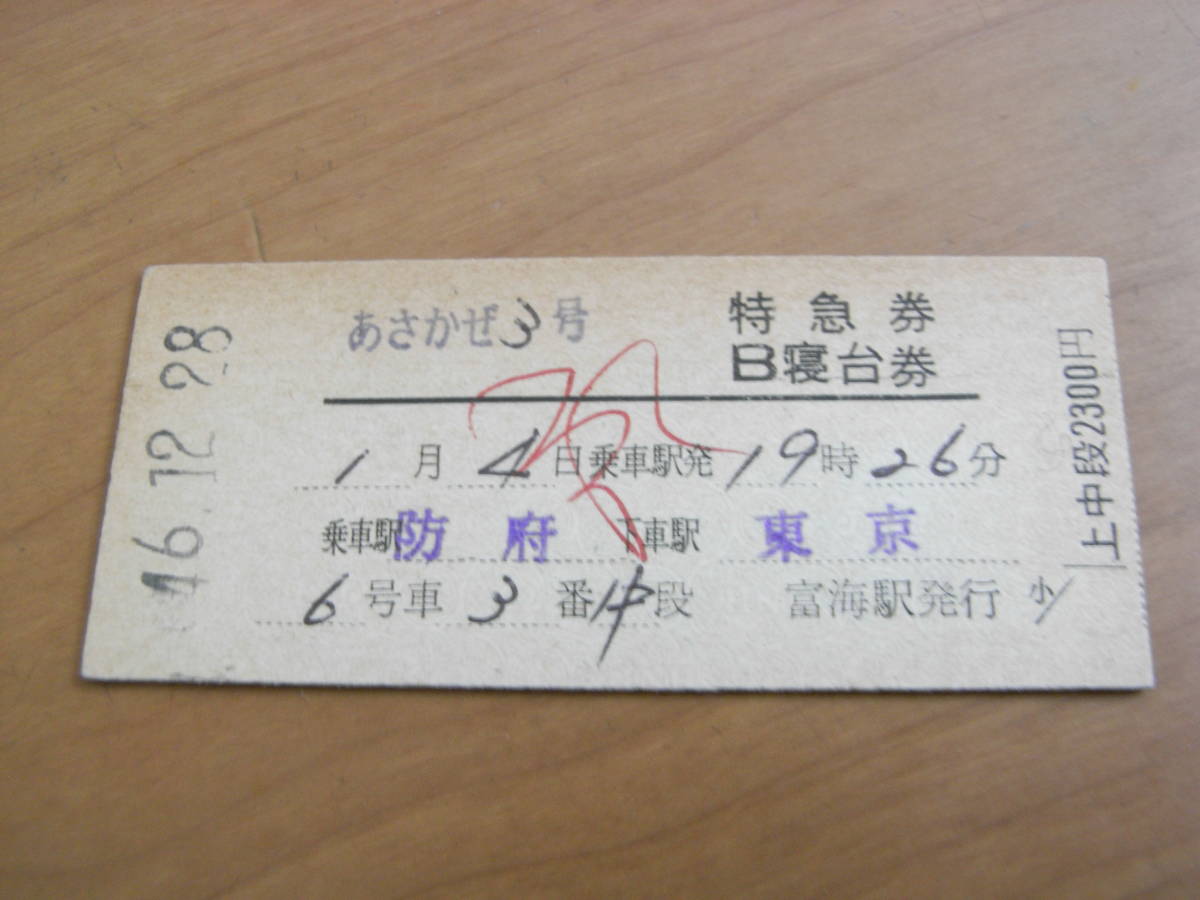 46.12.28
あさかぜ3号
特急券
B寝台券
1月4日乗車駅発19時26分
乗車駅防府 下車駅東京
6号車3番中段 富海駅発行 小
上中段2300円